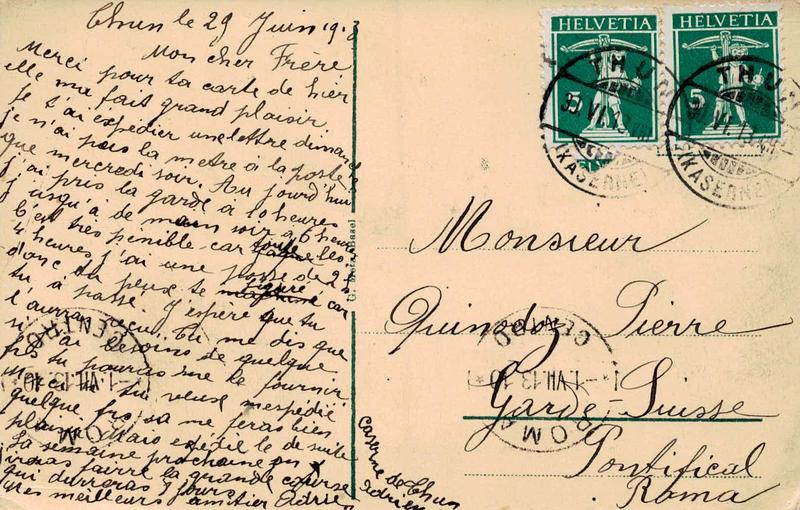 Thun le 29 Juin 1913
Mon cher Frère
Merci pour ta carte de hier
elle me fait grand plaisir
Je t'ai expédier une lettre dimanche
je n'ai pas la metre à la poste
que mercredi soir. Aujourd'hui
j'ai pris la garde à 10 heures
jusqu'à demain soir à 6 heures
C'est très pénible car toute les
4 heures j'ai une posse de 2 h
donc tu peux te figuré car
tu à passé. J'espère que tu
l'auras reçu. Tu me dis que
si j'ai besoins de quelque
frs tu pourais me le fournir
merci si tu veux m'espédié
quelque frs sa me feras bien
plaisir. Mais expédie le de suite
La semaine prochaine on
irons fairre la grande course
qui durreras 7 jours
tes meilleurs amitier Adrien
caserne de Thun
Adrien
G. Metz, Basel
HELVETIA
5
HELVETIA
5
THUN
30.VI.13
(KASERNE)
THUN
30.VI.13
(KASERNE)
Monsieur
Quinodoz Pierre
Garde-Suisse
Pontifical
Roma
ROMA
1.VII.13.10
CENTRO
ROMA
1.VII.13.10
CENTRO